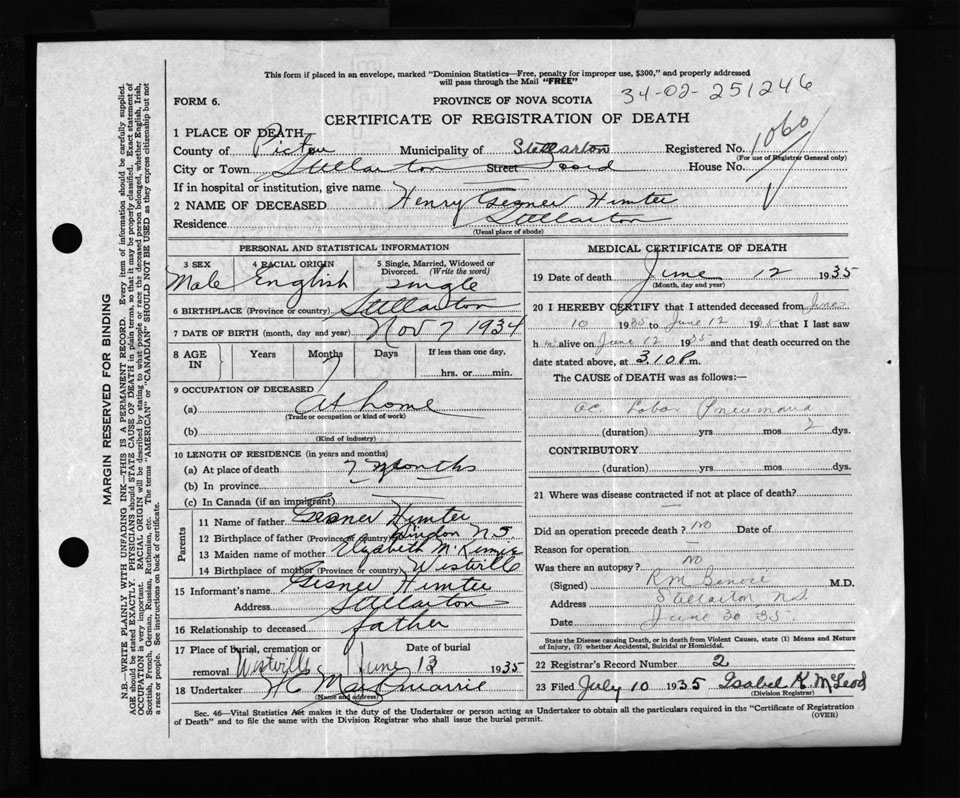 This form if placed in an envelope, marked "Dominion Statistics—Free, penalty for improper use, $300," and properly addressed
will pass through the Mail "FREE"
34-02-251246
FORM 6.
PROVINCE OF NOVA SCOTIA
CERTIFICATE OF REGISTRATION OF DEATH
1 PLACE OF DEATH
County of Pictou Municipality of Stellarton Registered No. 1060
(For use of Registrar General only)
City or Town Stellarton Street House No.
If in hospital or institution, give name
2 NAME OF DECEASED Henry Gesner Hunter
Residence Stellarton
(Usual place of abode)
PERSONAL AND STATISTICAL INFORMATION
3 SEX Male
4 RACIAL ORIGIN English
5 Single, Married, Widowed or Divorced. (Write the word) Single
6 BIRTHPLACE (Province or country) Stellarton
7 DATE OF BIRTH (month, day and year) Nov 7 1934
8 AGE IN Years Months 7 Days If less than one day. hrs. or min.
9 OCCUPATION OF DECEASED
(a) At home
(Trade or occupation or kind of work)
(b)
(Kind of industry)
10 LENGTH OF RESIDENCE (in years and months)
(a) At place of death 7 Months
(b) In province
(c) In Canada (if an immigrant)
Parents
11 Name of father Gesner Hunter
12 Birthplace of father (Province or country) N S.
13 Maiden name of mother Elizabeth
14 Birthplace of mother (Province or country) Westville
15 Informant's name Gesner Hunter
Address Stellarton
16 Relationship to deceased father
17 Place of burial, cremation or removal Westville Date of burial June 13 1935
18 Undertaker
(Name and address)
MEDICAL CERTIFICATE OF DEATH
19 Date of death June 12 1935
(Month, day and year)
20 I HEREBY CERTIFY that I attended deceased from June
10 1935 to June 12 1935 that I last saw
him alive on June 12 1935 and that death occurred on the
date stated above, at 3.10 P.m.
The CAUSE of DEATH was as follows:
ac. Lobar Pneumonia
(duration) yrs mos 2 dys.
CONTRIBUTORY
(duration) yrs. mos. dys.
21 Where was disease contracted if not at place of death?
Did an operation precede death? no Date of
Reason for operation
Was there an autopsy? no
(Signed) M.D.
Address Stellarton N.S.
Date June 20 35.
State the Disease causing Death, or in death from Violent Causes, state (1) Means and Nature
of Injury, (2) whether Accidental, Suicidal or Homicidal.
22 Registrar's Record Number 2
23 Filed July 10 1935 Isabel K McLeod
(Division Registrar)
Sec. 46—Vital Statistics Act makes it the duty of the Undertaker or person acting as Undertaker to obtain all the particulars required in the "Certificate of Registration
of Death" and to file the same with the Division Registrar who shall issue the burial permit.
(OVER)
MARGIN RESERVED FOR BINDING
N.B.—WRITE PLAINLY WITH UNFADING INK—THIS IS A PERMANENT RECORD. Every item of information should be carefully supplied.
AGE should be stated EXACTLY. PHYSICIANS should STATE CAUSE OF DEATH in plain terms, so that it may be properly classified. Exact statement of
OCCUPATION is very important. RACIAL ORIGIN will be described by stating to what people or race the deceased person belonged, whether English, Irish,
Scottish, French, German, Russian, Ruthenian, etc. The terms "AMERICAN" or "CANADIAN" SHOULD NOT BE USED as they express citizenship but not
a race or people. See instructions on back of certificate.